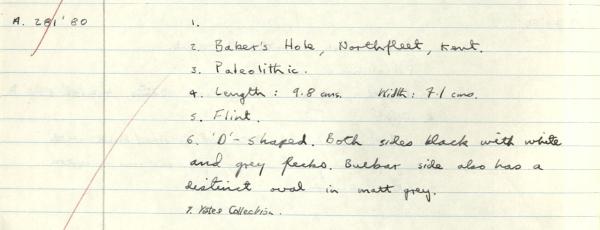 A. 281'80 1.
2. Baker's Hole, Northfleet, Kent.
3. Paleolithic.
4. Length : 9.8 cms. Width : 7.1 cms.
5. Flint.
6. 'D'- shaped. Both sides black with white
and grey flecks. Bulbar side also has a
distinct oval in matt grey.
7. Yates Collection.